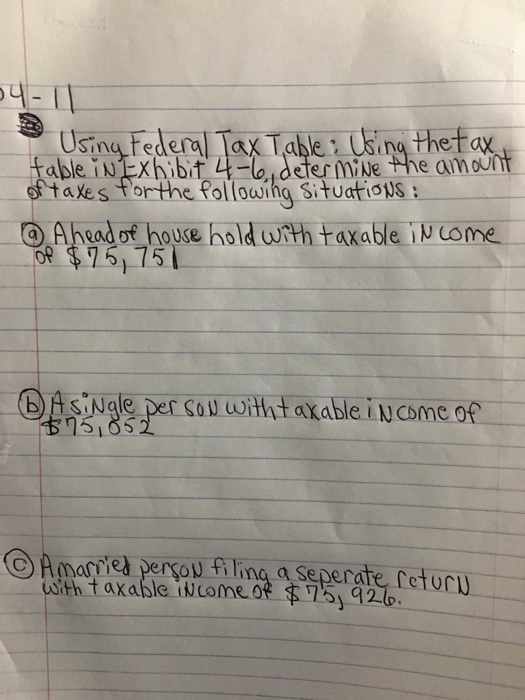 4-11
Using Federal Tax Table: Using the tax
table iN Exhibit 4-6, determiNe the amount
of taxes for the following situatioNs:
ⓐ A head of house hold with taxable iNcome
of $75,751
ⓑ A siNgle per soN with taxable iNcome of
$75,852
ⓒ A married persoN filing a seperate returN
with taxable iNcome of $75,926.